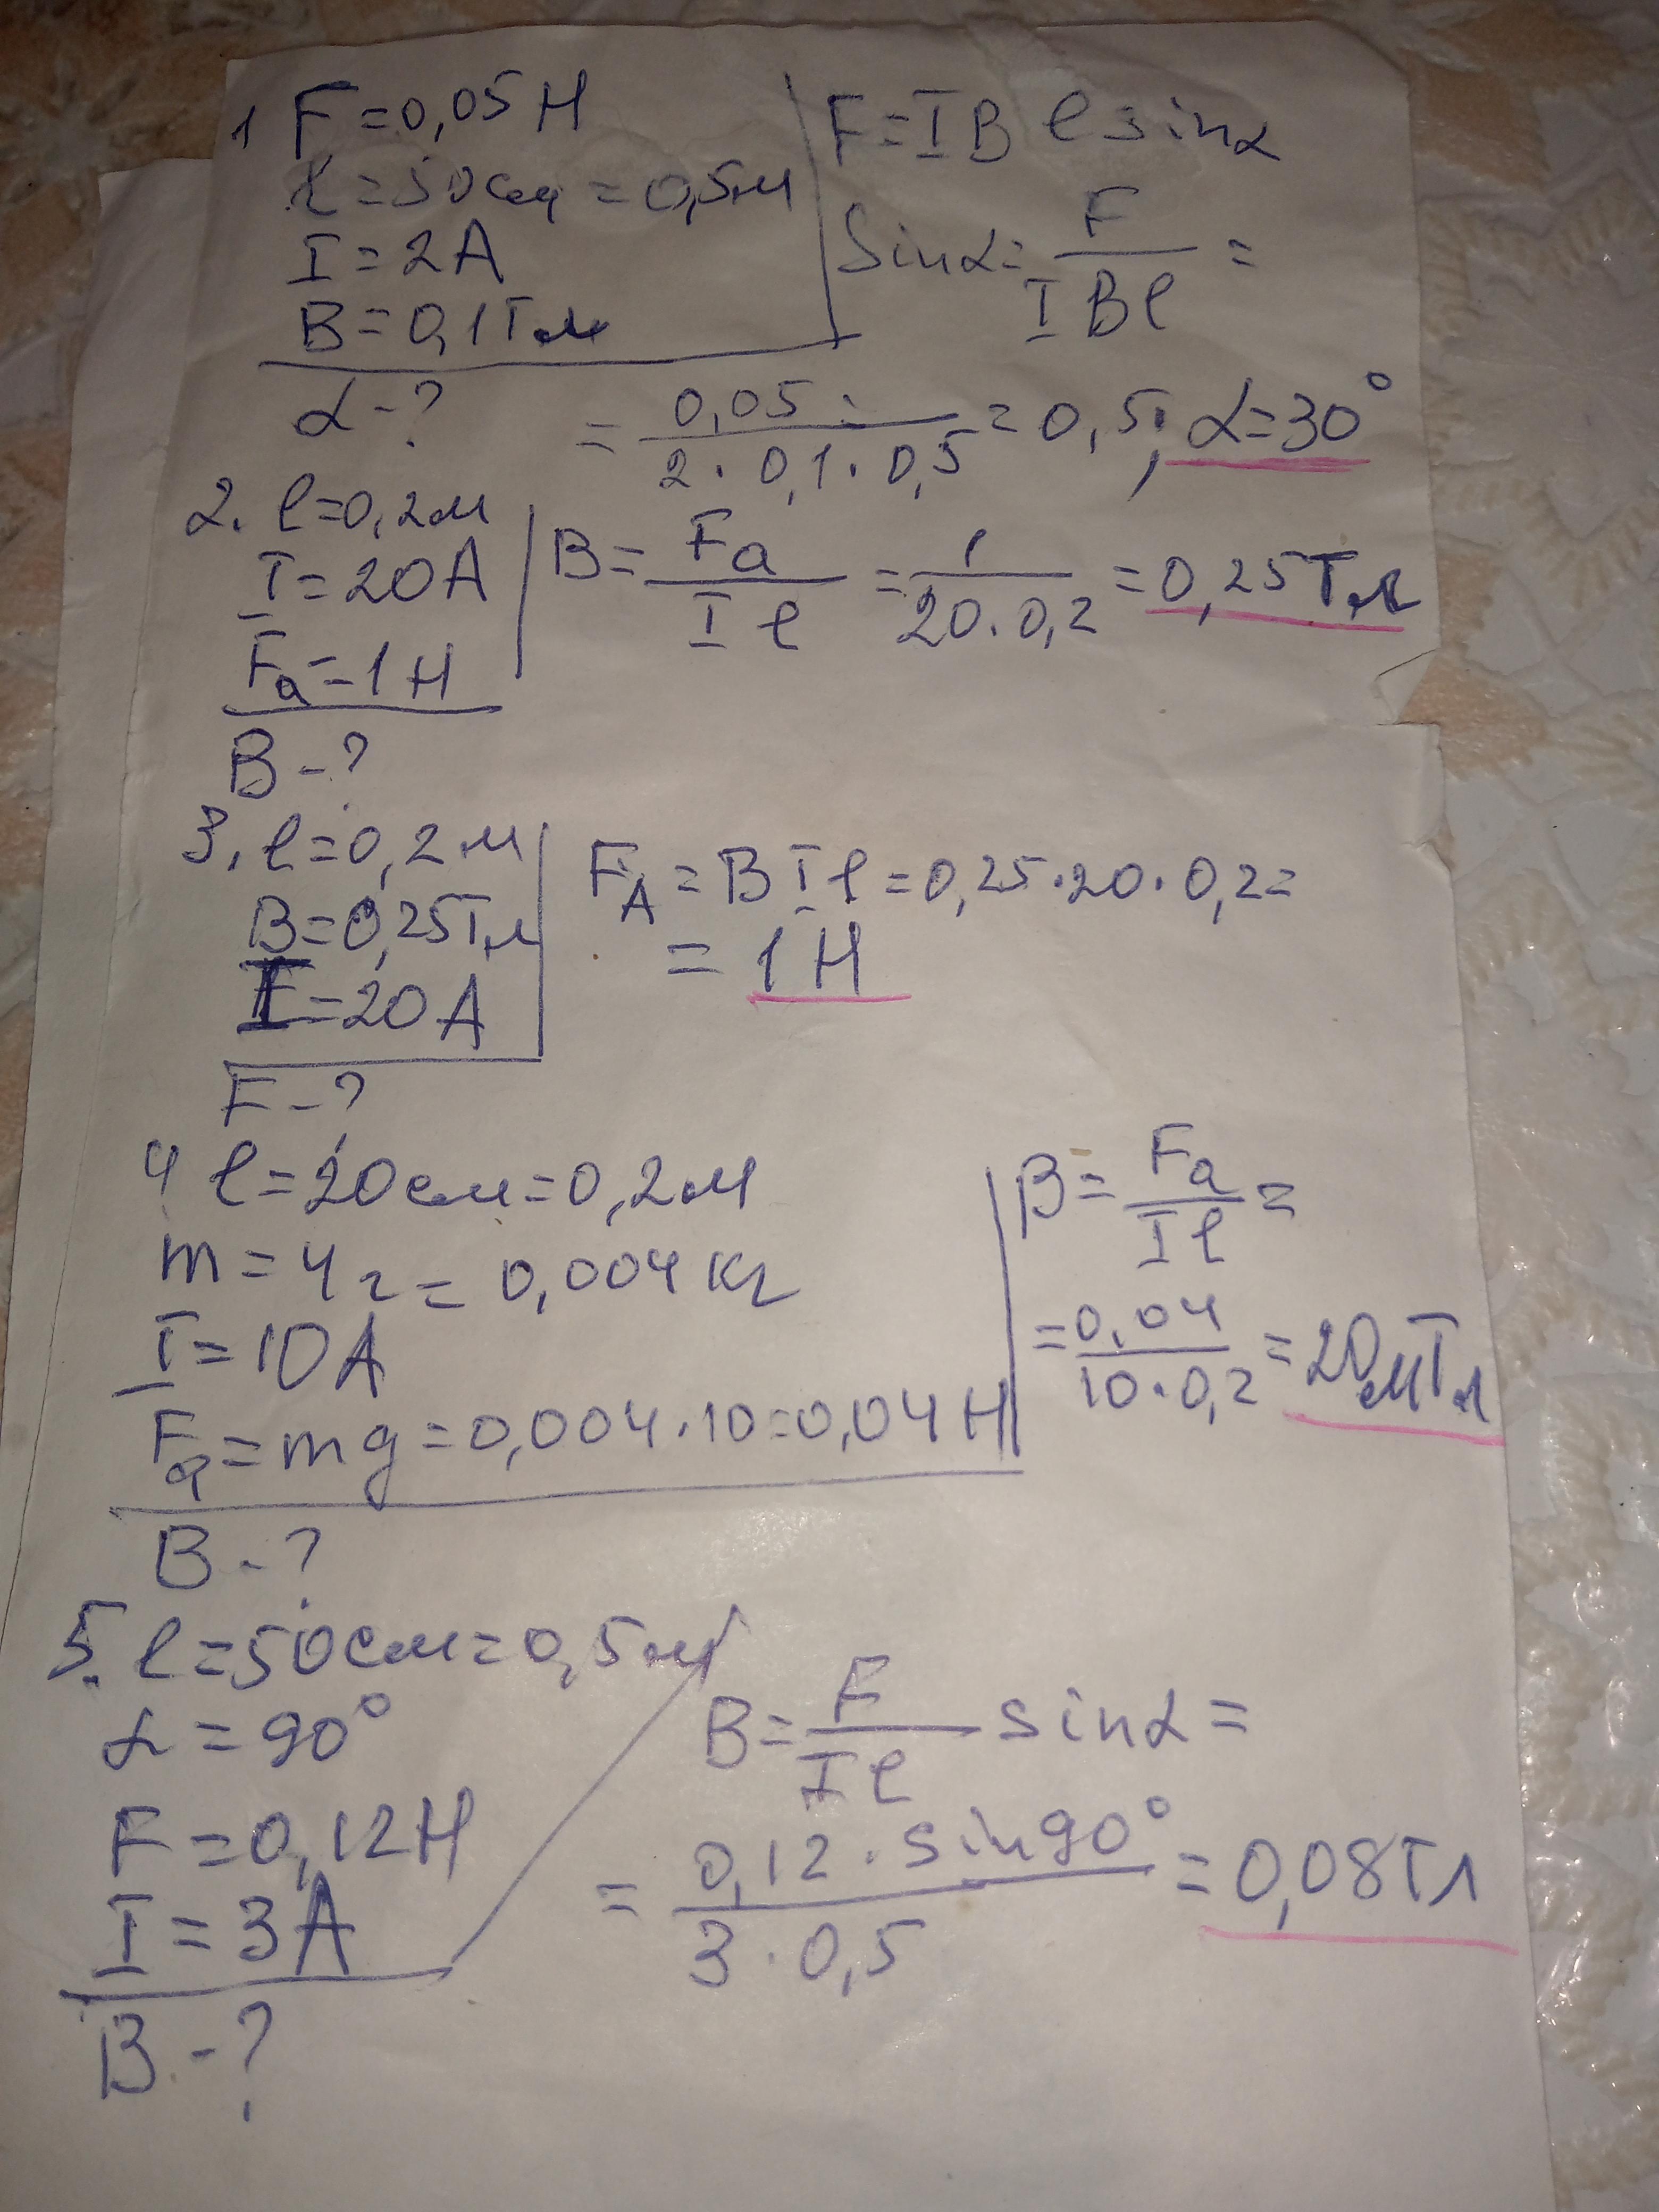 1 F=0,05Н
l=50см=0,5м
I=2А
B=0,1Тл
α-?
F=IBlsinα
Sinα=F/IBl=
=0,05/2·0,1·0,5=0,5; α=30°
2. l=0,2м
I=20А
Fa=1Н
B-?
B=Fa/Il=1/20·0,2=0,25Тл
3. l=0,2м
B=0,25Тл
I=20А
F-?
FA=BIl=0,25·20·0,2=
=1Н
4 l=20см=0,2м
m=4г=0,004кг
I=10А
Fa=mg=0,004·10=0,04Н
B-?
B=Fa/Il=
=0,04/10·0,2=20мТл
5. l=50см=0,5м
α=90°
F=0,12Н
I=3А
B-?
B=F/Il sinα=
=0,12·sin90°/3·0,5=0,08Тл